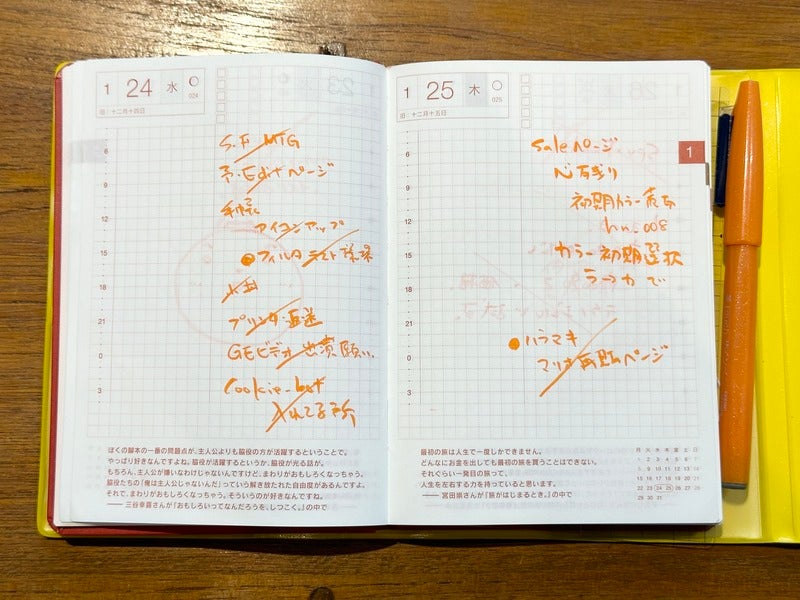 1 24 水
024
旧：十二月十四日
6
9
12
15
18
21
0
3
S.F MTG
予・Editページ
手帳
アイコンアップ
フィルタ テスト環境
プリンタ・返送
GEビデオ 出演願い
Cookie-bot
入れてる所
ぼくの脚本の一番の問題点が、主人公よりも脇役の方が活躍するということで。
やっぱり好きなんですよね。脇役が活躍するというか、脇役が光る話が。
もちろん、主人公が嫌いなわけじゃないんですけど、まわりがおもしろくなっちゃう。
脇役たちの「俺は主人公じゃないんだ」っていう解き放たれた自由度があるんですよ。
それで、まわりがおもしろくなっちゃう。そういうのが好きなんですね。
—— 三谷幸喜さんが『おもしろいってなんだろうを、しつこく。』の中で
1 25 木
025
旧：十二月十五日
1
6
9
12
15
18
21
0
3
Saleページ
初期カラー表示
hn_008
カラー初期選択
ラッカで
ハラマキ
マリオ再販ページ
最初の旅は人生で一度しかできません。
どんなにお金を出しても最初の旅を買うことはできない。
それぐらい一発目の旅って、
人生を左右する力を持っていると思います。
—— 宮田珠己さんが『旅がはじまるとき。』の中で
月 火 水 木 金 土 日
1 2 3 4 5 6 7
8 9 10 11 12 13 14
15 16 17 18 19 20 21
22 23 24 25 26 27 28
29 30 31